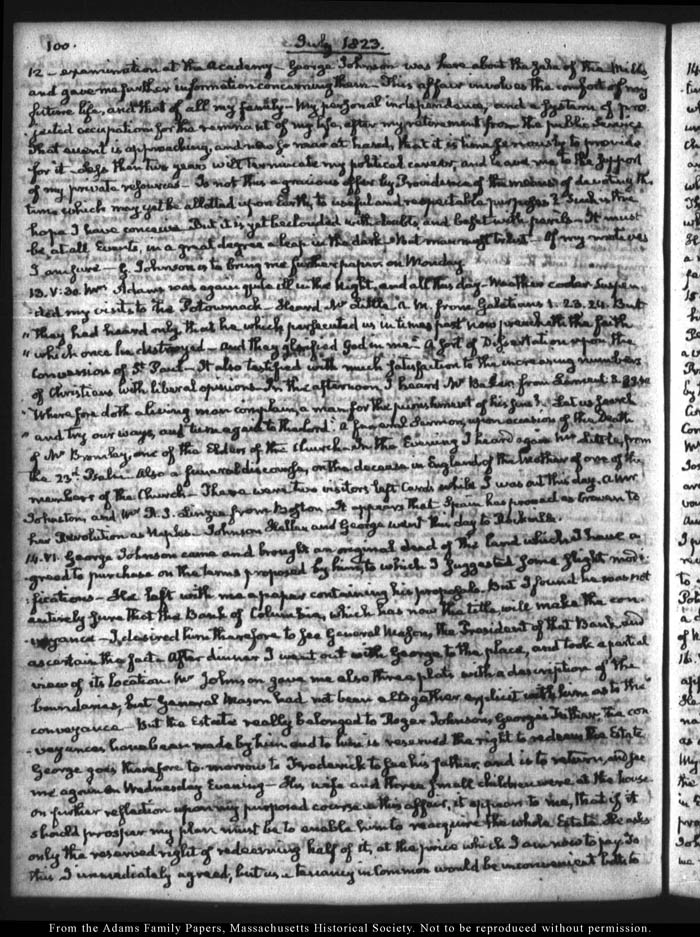 100.
July 1823.
12 – examination at the Academy – George Johnson was here about the Sale of the Mills
and gave me further information concerning them – This affair involves the comfort of my
future life, and that of all my family – My personal independence, and a System of pro-
-jected occupation for the remnant of my life, after my retirement from the public Service
That event is approaching, and now so near at hand, that it is time seriously to provide
for it – less than two years will terminate my political career, and leave me to the support
of my private resources – Is not this a gracious offer by Providence of the means of devoting the
time which may yet be allotted upon Earth, to useful and respectable purposes? Such is the
hope I have conceived. But it is yet beclouded with doubts, and beset with perils – It must
be at all Events, in a great degree a leap in the dark – Of my motives
I am sure – G. Johnson is to bring me further papers on Monday
13. V:30. Mrs Adams was again quite ill in the Night, and all this day – Weather cooler. Suspen-
-ded my visits to the Potowmack – Heard Mr Little. A.M. from Galatians 1. 23. 24. But
" they had heard only, that he which persecuted us in times past now preacheth the faith
" which once he destroyed – And they glorified God in me" – A sort of Dissertation upon the
Conversion of St Paul – It also testified with much satisfaction to the increasing numbers
of Christians with liberal opinions – In the afternoon I heard Mr Baker, from Lament.
" Wherefore doth a living man complain, a man for the punishment of his sins? Let us search
" and try our ways, and turn again to the Lord." A funeral Sermon, upon occasion of the Death
of Mr Bromley, one of the Elders of the Church – In the Evening I heard again Mr Little, from
the 23d Psalm – Also a funeral discourse, on the decease in England of the Mother of one of the
members of the Church – There were two visitors left Cards while I was out this day. a Mr
Johnston, and Mr R. I. Linzee from Boston – It appears that Spain has proved as Craven to
her Revolution as Naples. Johnson Hellen and George went this day to Rockville.
14. VI. George Johnson came and brought an original deed of the land which I have a-
greed to purchase on the terms proposed by him, to which I suggested some slight modi-
-fications – He left with me a paper containing his proposals. But I found he was not
entirely sure that the Bank of Columbia, which has now the title, will make the con-
-veyance – I desired him therefore to see General Mason, the President of that Bank, and
ascertain the fact. After dinner I went out with George to the place, and took a partial
view of its location. Mr Johnson gave me also three plats with a description of the
boundaries, but General Mason had not been altogether explicit with him as to the
conveyance – But the Estate really belonged to Roger Johnson, George's Father. The con
-veyances have been made by him and to him is reserved the right to redeem the Estate
George goes therefore to-morrow to Frederick to see his father, and is to return, and see
me again on Wednesday Evening – His wife and three small children were at the house.
on further reflection upon my purposed course in this affair, it appears to me, that if it
should prosper my plan must be to enable him to reacquire the whole Estate. He asks
only the reserved right of redeeming half of it, at the price which I am now to pay. To
this I immediately agreed, but as a tenancy in Common would be inconvenient both to
From the Adams Family Papers, Massachusetts Historical Society. Not to be reproduced without permission.